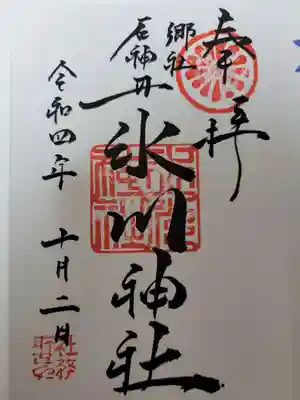 奉拝
郷社
石神井
氷川神社
令和四年 十月二日